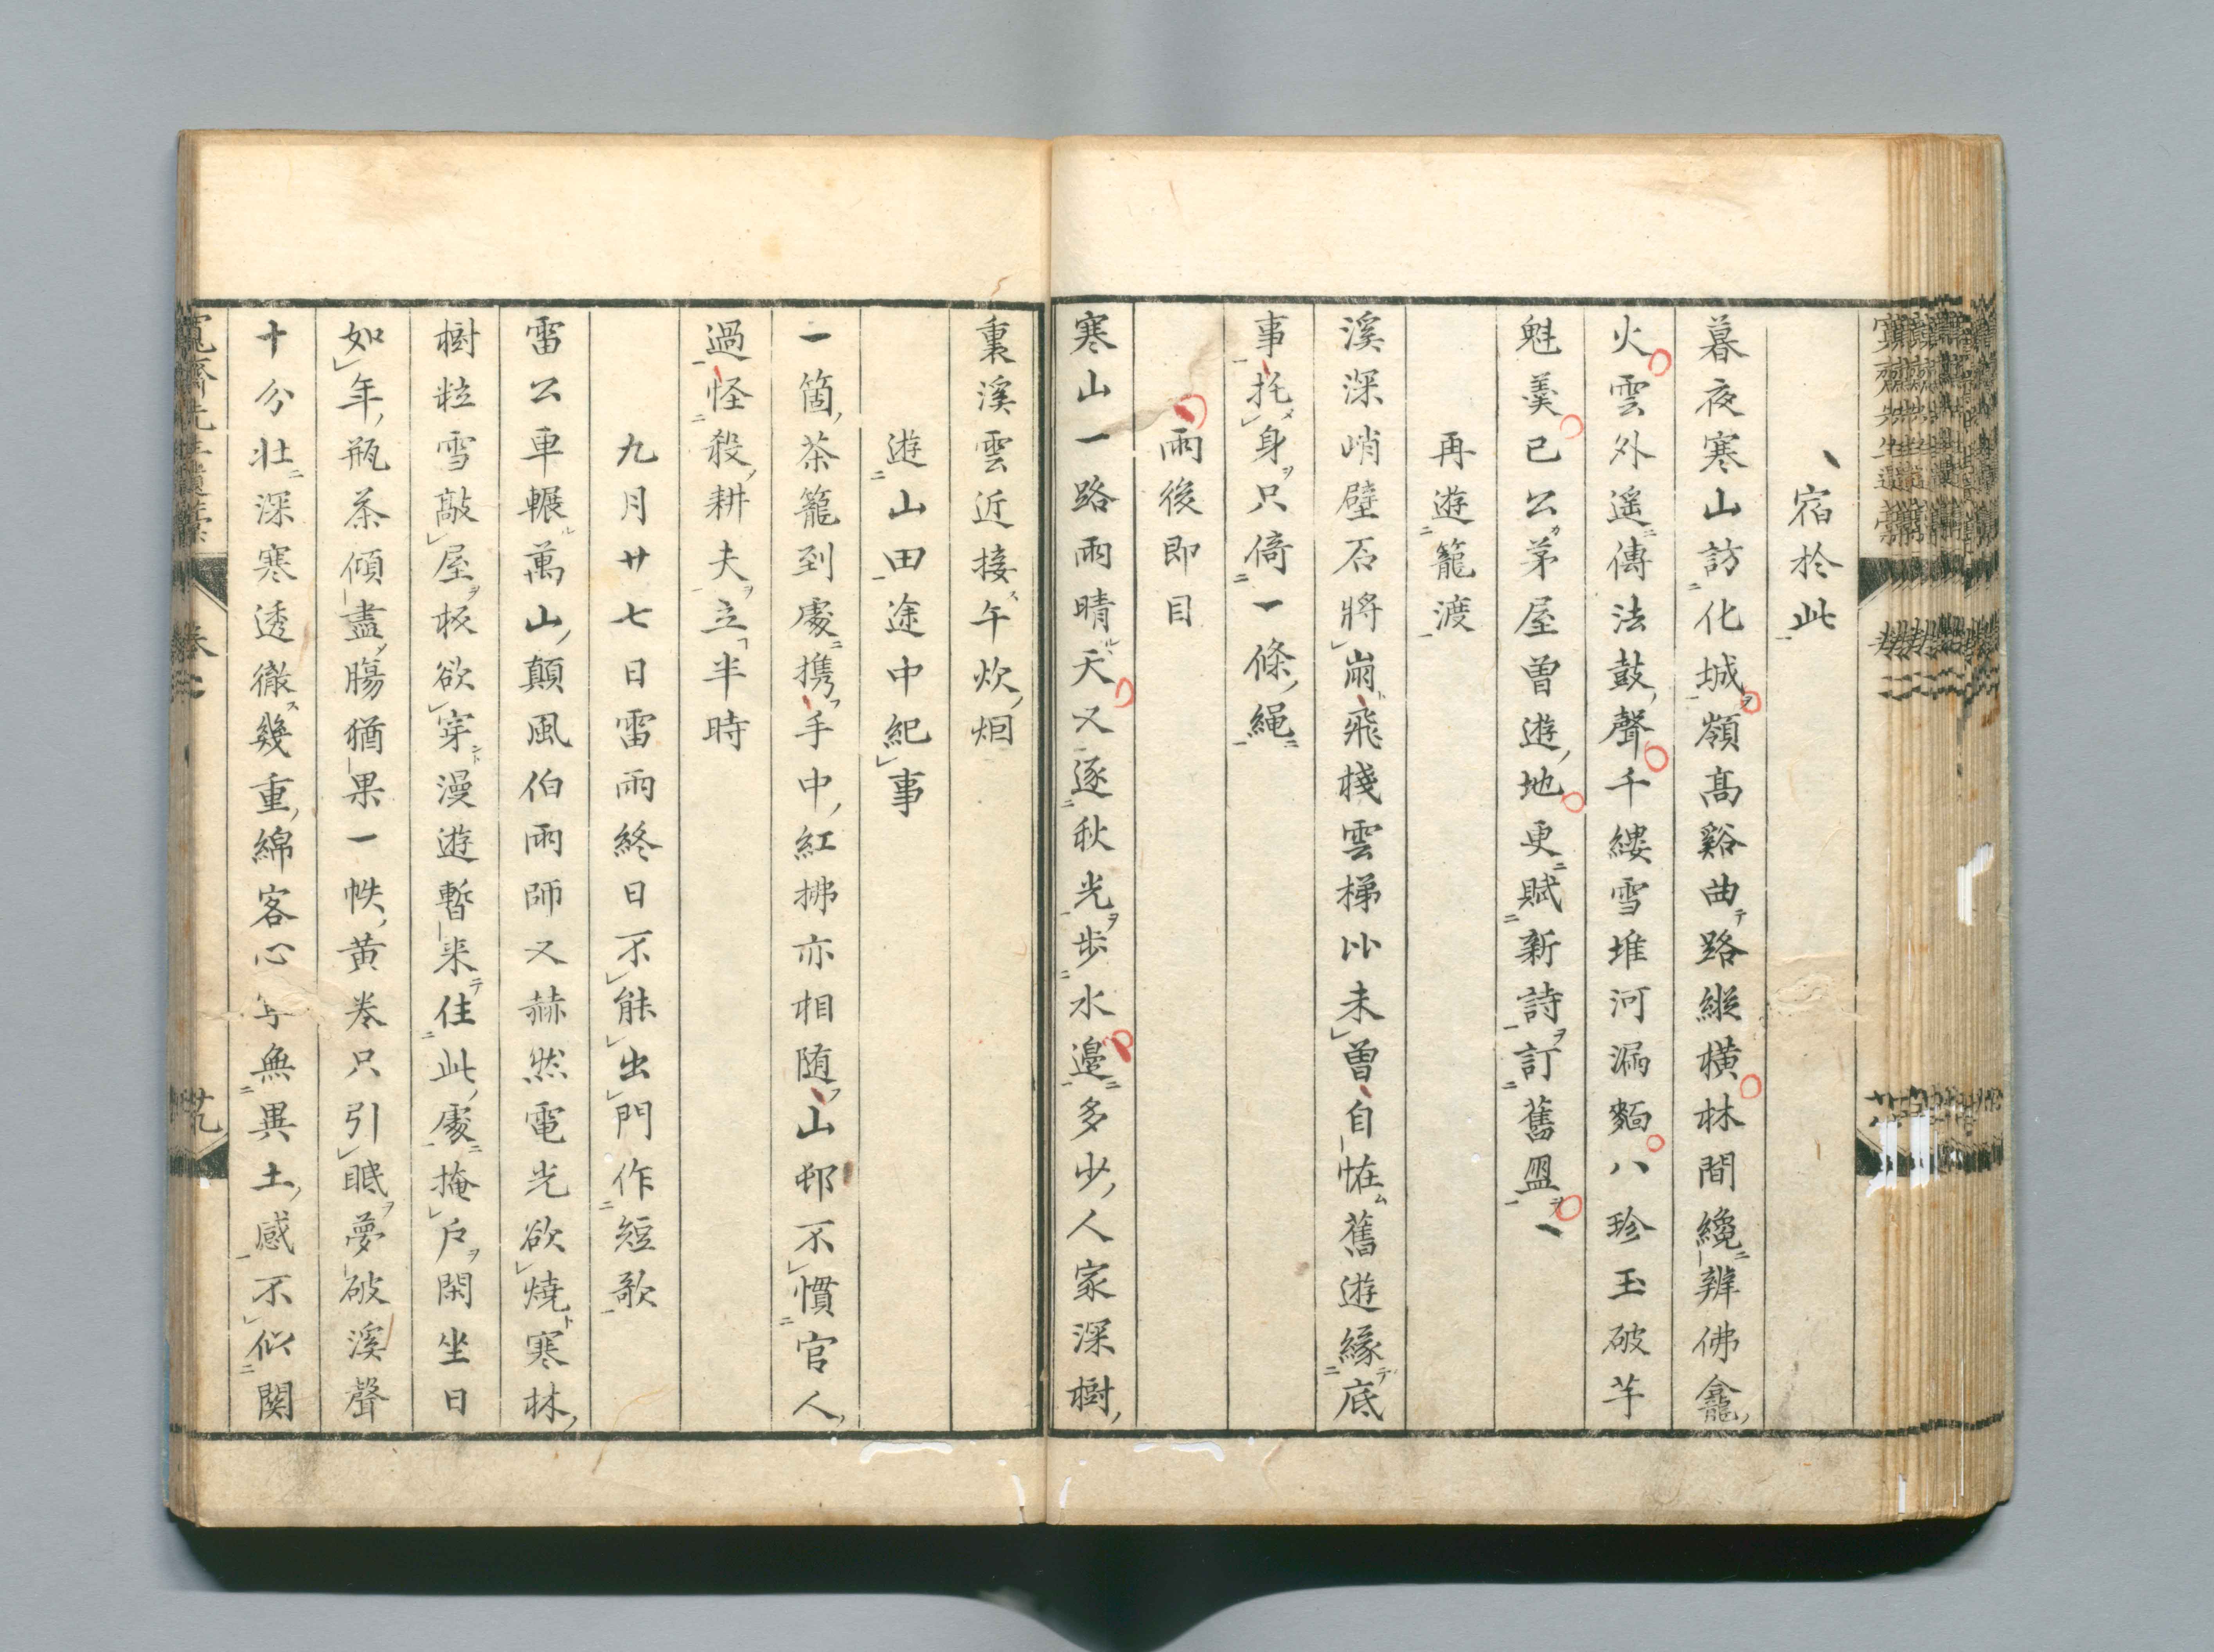 宿於此
暮夜寒山訪化城嶺高谿曲路縱橫林間纔辨佛龕
火雲外遥傳法鼓聲千縷雪堆河漏麵八珍玉破芋
魁羹已公茅屋曽遊地更賦新詩訂舊盟
再遊籠渡
溪深峭壁石將崩飛棧雲梯比未曽自恠舊遊緣底
事托身只倚一條繩
雨後即目
寒山一路雨晴天又逐秋光步水邊多少人家深樹
裏溪雲近接午炊烟
遊山田途中紀事
一箇茶籠到處携手中紅拂亦相随山邨不慣官人
過怪殺耕夫立半時
九月廿七日雷雨終日不能出門作短歌
雷公車輾萬山顛風伯雨師又赫然電光欲燒寒林
樹粒雪敲屋板欲穿漫遊暫来住此處掩戶閑坐日
如年瓶茶傾盡腸猶果一帙黄卷只引眠夢破溪聲
十分壯深寒透徹幾重綿客心與無異土感不似関
寬齋先生遺稾 卷二